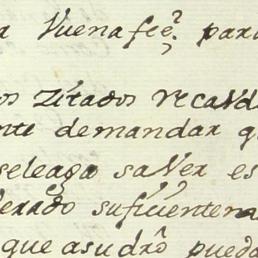 a Vuena feê. para
os Zitados recaud
nte demandar q
seleaga saver es
erado suficientem
que asudrô pueda